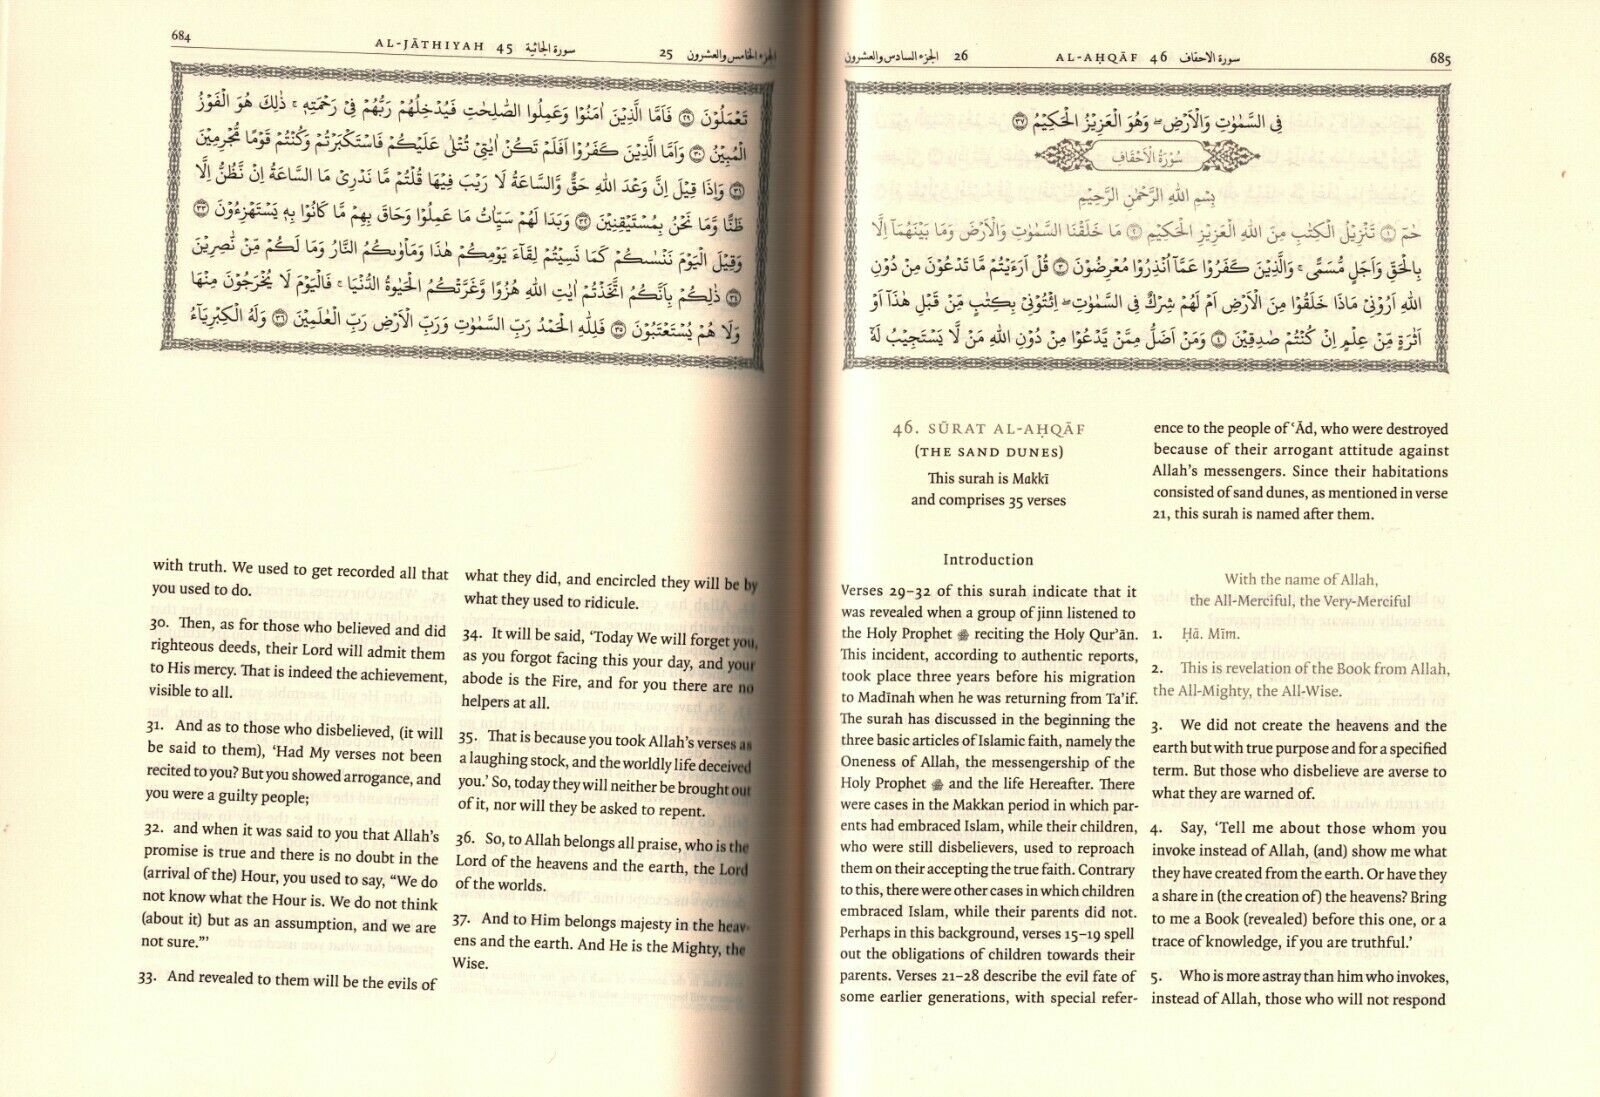 684
AL-JĀTHIYAH 45 سورة الجاثية
25 الجزء الخامس والعشرون
تَعۡمَلُوۡنَ ﴿۲۹﴾ فَاَمَّا الَّذِيۡنَ اٰمَنُوۡا وَعَمِلُوا الصّٰلِحٰتِ فَيُدۡخِلُهُمۡ رَبُّهُمۡ فِىۡ رَحۡمَتِهٖ ؕ ذٰلِكَ هُوَ الۡفَوۡزُ
الۡمُبِيۡنُ ﴿۳۰﴾ وَاَمَّا الَّذِيۡنَ كَفَرُوۡا اَفَلَمۡ تَكُنۡ اٰيٰتِىۡ تُتۡلٰى عَلَيۡكُمۡ فَاسۡتَكۡبَرۡتُمۡ وَكُنۡتُمۡ قَوۡمًا مُّجۡرِمِيۡنَ
﴿۳۱﴾ وَاِذَا قِيۡلَ اِنَّ وَعۡدَ اللهِ حَقٌّ وَّالسَّاعَةُ لَا رَيۡبَ فِيۡهَا قُلۡتُمۡ مَّا نَدۡرِىۡ مَا السَّاعَةُ اِنۡ نَّظُنُّ اِلَّا
ظَنًّا وَّمَا نَحۡنُ بِمُسۡتَيۡقِنِيۡنَ ﴿۳۲﴾ وَبَدَا لَهُمۡ سَيِّاٰتُ مَا عَمِلُوۡا وَحَاقَ بِهِمۡ مَّا كَانُوۡا بِهٖ يَسۡتَهۡزِءُوۡنَ ﴿۳۳﴾
وَقِيۡلَ الۡيَوۡمَ نَنۡسٰٮكُمۡ كَمَا نَسِيۡتُمۡ لِقَآءَ يَوۡمِكُمۡ هٰذَا وَمَاۡوٰٮكُمُ النَّارُ وَمَا لَكُمۡ مِّنۡ نّٰصِرِيۡنَ
﴿۳۴﴾ ذٰلِكُمۡ بِاَنَّكُمُ اتَّخَذۡتُمۡ اٰيٰتِ اللهِ هُزُوًا وَّغَرَّتۡكُمُ الۡحَيٰوةُ الدُّنۡيَا ۚ فَالۡيَوۡمَ لَا يُخۡرَجُوۡنَ مِنۡهَا
وَلَا هُمۡ يُسۡتَعۡتَبُوۡنَ ﴿۳۵﴾ فَلِلّٰهِ الۡحَمۡدُ رَبِّ السَّمٰوٰتِ وَرَبِّ الۡاَرۡضِ رَبِّ الۡعٰلَمِيۡنَ ﴿۳۶﴾ وَلَهُ الۡكِبۡرِيَآءُ
with truth. We used to get recorded all that
you used to do.
30. Then, as for those who believed and did
righteous deeds, their Lord will admit them
to His mercy. That is indeed the achievement,
visible to all.
31. And as to those who disbelieved, (it will
be said to them), ‘Had My verses not been
recited to you? But you showed arrogance, and
you were a guilty people;
32. and when it was said to you that Allah’s
promise is true and there is no doubt in the
(arrival of the) Hour, you used to say, “We do
not know what the Hour is. We do not think
(about it) but as an assumption, and we are
not sure.”’
33. And revealed to them will be the evils of
what they did, and encircled they will be by
what they used to ridicule.
34. It will be said, ‘Today We will forget you,
as you forgot facing this your day, and your
abode is the Fire, and for you there are no
helpers at all.
35. That is because you took Allah’s verses as
a laughing stock, and the worldly life deceived
you.’ So, today they will neither be brought out
of it, nor will they be asked to repent.
36. So, to Allah belongs all praise, who is the
Lord of the heavens and the earth, the Lord
of the worlds.
37. And to Him belongs majesty in the heav-
ens and the earth. And He is the Mighty, the
Wise.
الجزء السادس والعشرون 26
AL-AḤQĀF 46 سورة الاحقاف
685
فِى السَّمٰوٰتِ وَالۡاَرۡضِ ۖ وَهُوَ الۡعَزِيۡزُ الۡحَكِيۡمُ ﴿۳۷﴾
سُوۡرَةُ الۡاَحۡقَافِ
بِسۡمِ اللهِ الرَّحۡمٰنِ الرَّحِيۡمِ
حٰمٓ ﴿۱﴾ تَنۡزِيۡلُ الۡكِتٰبِ مِنَ اللهِ الۡعَزِيۡزِ الۡحَكِيۡمِ ﴿۲﴾ مَا خَلَقۡنَا السَّمٰوٰتِ وَالۡاَرۡضَ وَمَا بَيۡنَهُمَاۤ اِلَّا
بِالۡحَقِّ وَاَجَلٍ مُّسَمًّى ؕ وَالَّذِيۡنَ كَفَرُوۡا عَمَّاۤ اُنۡذِرُوۡا مُعۡرِضُوۡنَ ﴿۳﴾ قُلۡ اَرَءَيۡتُمۡ مَّا تَدۡعُوۡنَ مِنۡ دُوۡنِ
اللهِ اَرُوۡنِىۡ مَاذَا خَلَقُوۡا مِنَ الۡاَرۡضِ اَمۡ لَهُمۡ شِرۡكٌ فِى السَّمٰوٰتِ ؕ اِئۡتُوۡنِىۡ بِكِتٰبٍ مِّنۡ قَبۡلِ هٰذَاۤ اَوۡ
اَثٰرَةٍ مِّنۡ عِلۡمٍ اِنۡ كُنۡتُمۡ صٰدِقِيۡنَ ﴿۴﴾ وَمَنۡ اَضَلُّ مِمَّنۡ يَّدۡعُوۡا مِنۡ دُوۡنِ اللهِ مَنۡ لَّا يَسۡتَجِيۡبُ لَهٗۤ
46. SŪRAT AL-AḤQĀF
(THE SAND DUNES)
This surah is Makkī
and comprises 35 verses
Introduction
Verses 29–32 of this surah indicate that it
was revealed when a group of jinn listened to
the Holy Prophet ﷺ reciting the Holy Qur’ān.
This incident, according to authentic reports,
took place three years before his migration
to Madīnah when he was returning from Ta’if.
The surah has discussed in the beginning the
three basic articles of Islamic faith, namely the
Oneness of Allah, the messengership of the
Holy Prophet ﷺ and the life Hereafter. There
were cases in the Makkan period in which par-
ents had embraced Islam, while their children,
who were still disbelievers, used to reproach
them on their accepting the true faith. Contrary
to this, there were other cases in which children
embraced Islam, while their parents did not.
Perhaps in this background, verses 15–19 spell
out the obligations of children towards their
parents. Verses 21–28 describe the evil fate of
some earlier generations, with special refer-
ence to the people of ‘Ād, who were destroyed
because of their arrogant attitude against
Allah’s messengers. Since their habitations
consisted of sand dunes, as mentioned in verse
21, this surah is named after them.
With the name of Allah,
the All-Merciful, the Very-Merciful
1. Ḥā. Mīm.
2. This is revelation of the Book from Allah,
the All-Mighty, the All-Wise.
3. We did not create the heavens and the
earth but with true purpose and for a specified
term. But those who disbelieve are averse to
what they are warned of.
4. Say, ‘Tell me about those whom you
invoke instead of Allah, (and) show me what
they have created from the earth. Or have they
a share in (the creation of) the heavens? Bring
to me a Book (revealed) before this one, or a
trace of knowledge, if you are truthful.’
5. Who is more astray than him who invokes,
instead of Allah, those who will not respond